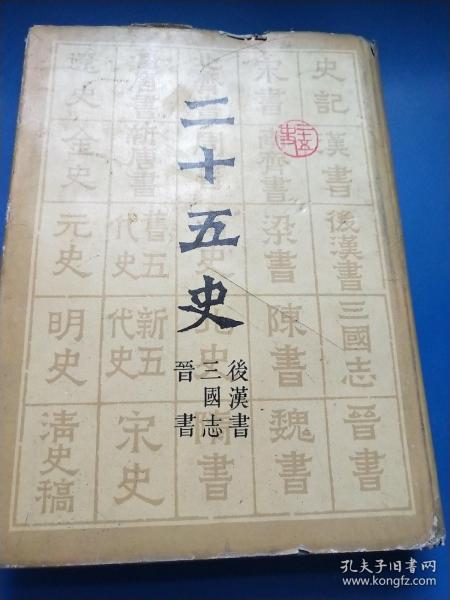 二十五史
後漢書
三國志
晉書
二十五史
史記
漢書
後漢書
三國志
晉書
宋書
南齊書
梁書
陳書
魏書
隋書
舊唐書
新唐書
舊五代史
新五代史
宋史
遼史
金史
元史
明史
清史稿
孔夫子旧书网
www.kongfz.com